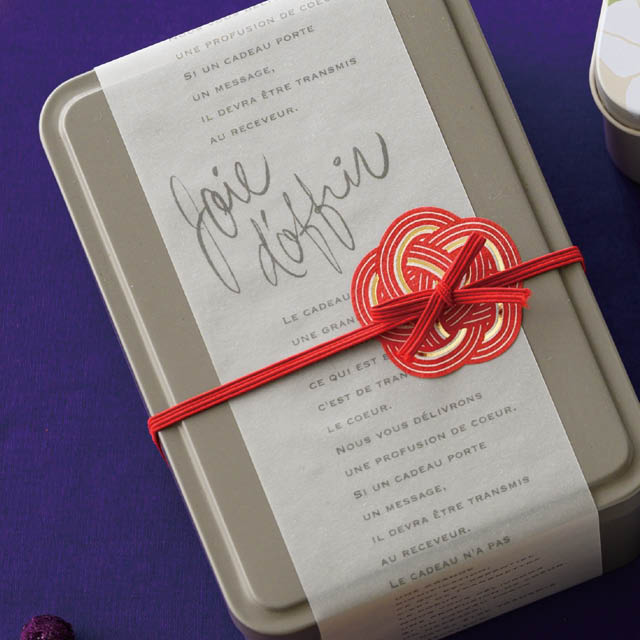 UNE PROFUSION DE COEUR.
SI UN CADEAU PORTE
UN MESSAGE,
IL DEVRA ÊTRE TRANSMIS
AU RECEVEUR.
Joie
d'offrir
LE CADEAU
UNE GRAN
CE QUI EST
C'EST DE TRAN
LE COEUR.
NOUS VOUS DÉLIVRONS
UNE PROFUSION DE COEUR.
SI UN CADEAU PORTE
UN MESSAGE,
IL DEVRA ÊTRE TRANSMIS
AU RECEVEUR.
LE CADEAU N'A PAS